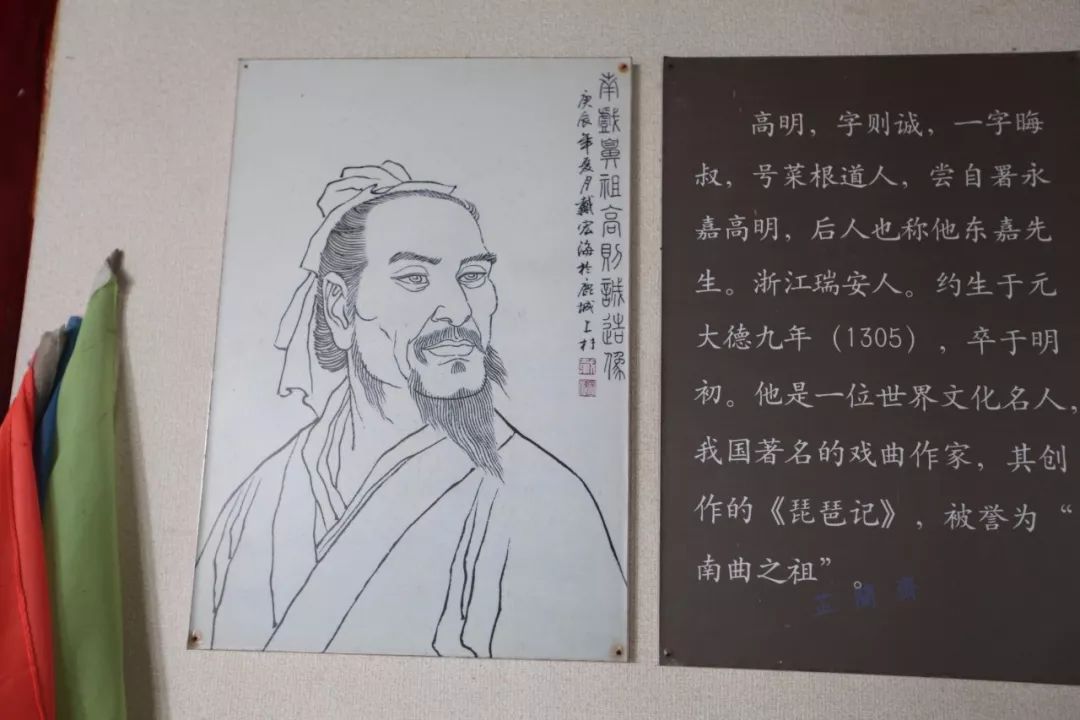 南戲鼻祖高則誠造像
庚辰年夏月戴宏海於鹿城
高明，字则诚，一字晦
叔，号菜根道人，尝自署永
嘉高明，后人也称他东嘉先
生。浙江瑞安人。约生于元
大德九年（1305），卒于明
初。他是一位世界文化名人，
我国著名的戏曲作家，其创
作的《琵琶记》，被誉为“
南曲之祖”。